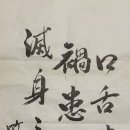 口舌
禍患
滅身